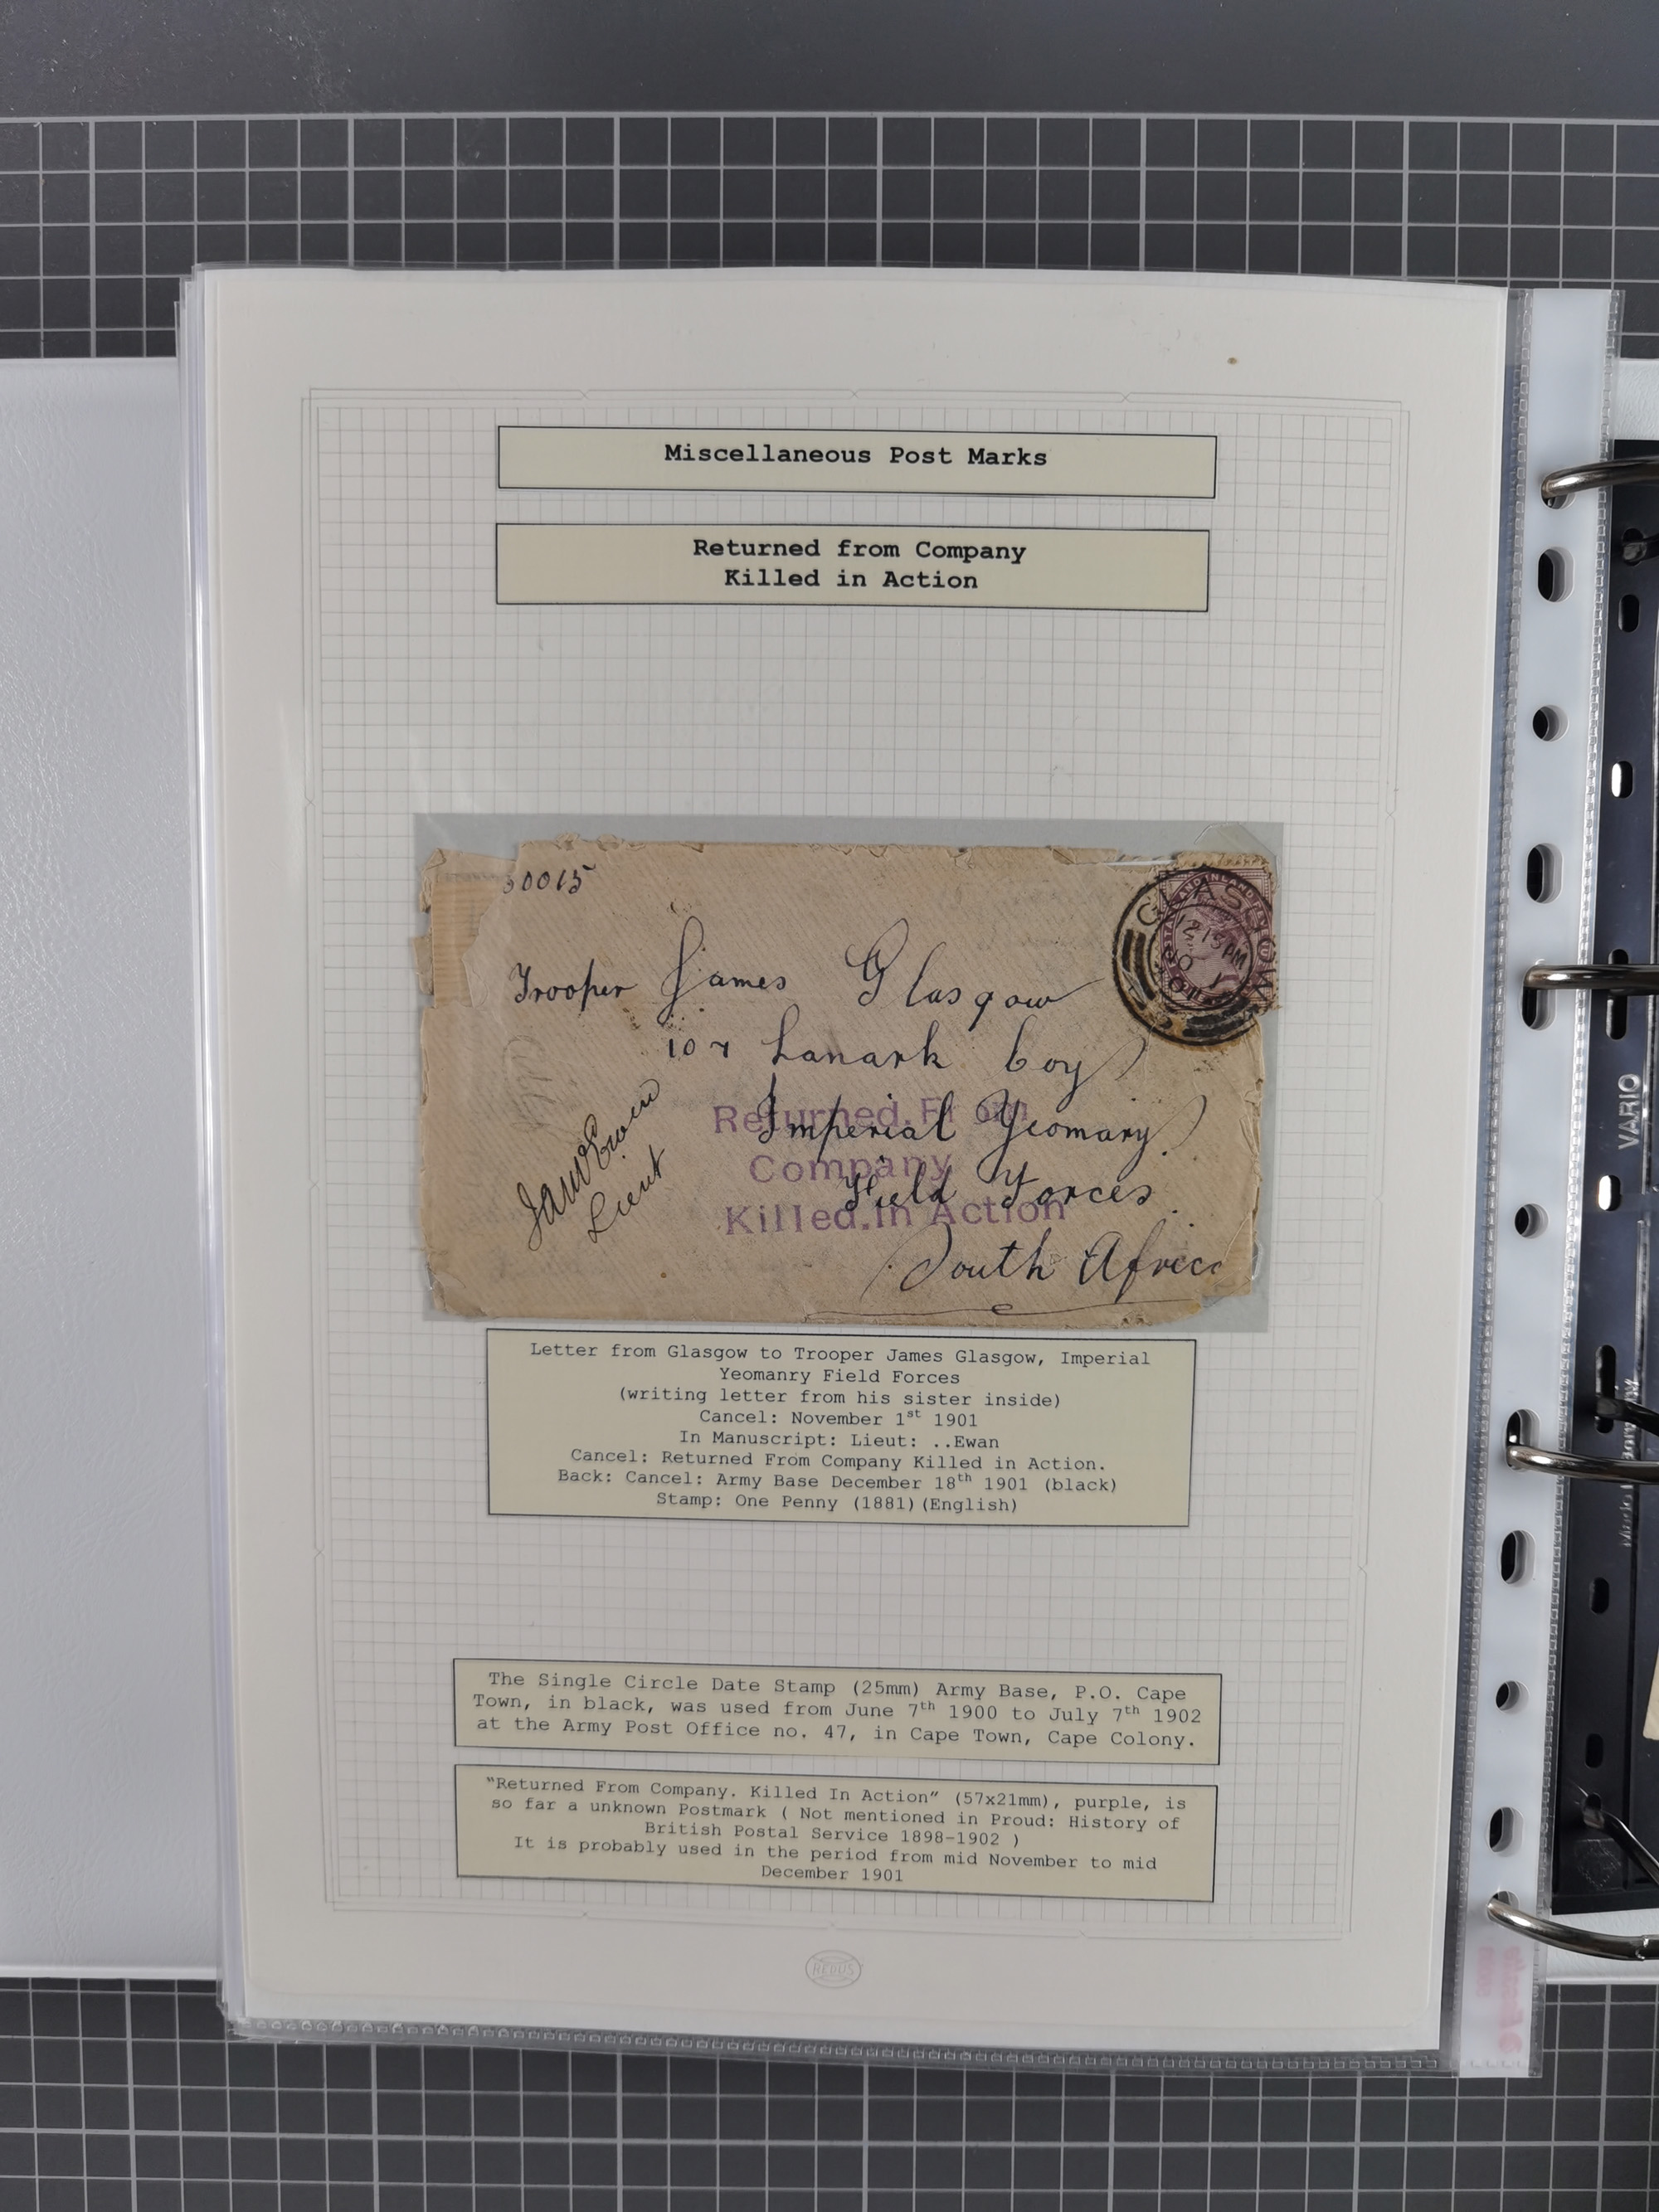 Miscellaneous Post Marks
Returned from Company
Killed in Action
30015
GLASGOW
2 15 PM
Trooper James Glasgow
107 Lanark Coy
Imperial Yeomany
Field Forces
South Africa
Lieut
Returned. From
Company
Killed.in Action
Letter from Glasgow to Trooper James Glasgow, Imperial
Yeomanry Field Forces
(writing letter from his sister inside)
Cancel: November 1st 1901
In Manuscript: Lieut: ..Ewan
Cancel: Returned From Company Killed in Action.
Back: Cancel: Army Base December 18th 1901 (black)
Stamp: One Penny (1881)(English)
The Single Circle Date Stamp (25mm) Army Base, P.O. Cape
Town, in black, was used from June 7th 1900 to July 7th 1902
at the Army Post Office no. 47, in Cape Town, Cape Colony.
"Returned From Company. Killed In Action" (57x21mm), purple, is
so far a unknown Postmark ( Not mentioned in Proud: History of
British Postal Service 1898-1902 )
It is probably used in the period from mid November to mid
December 1901
VARIO